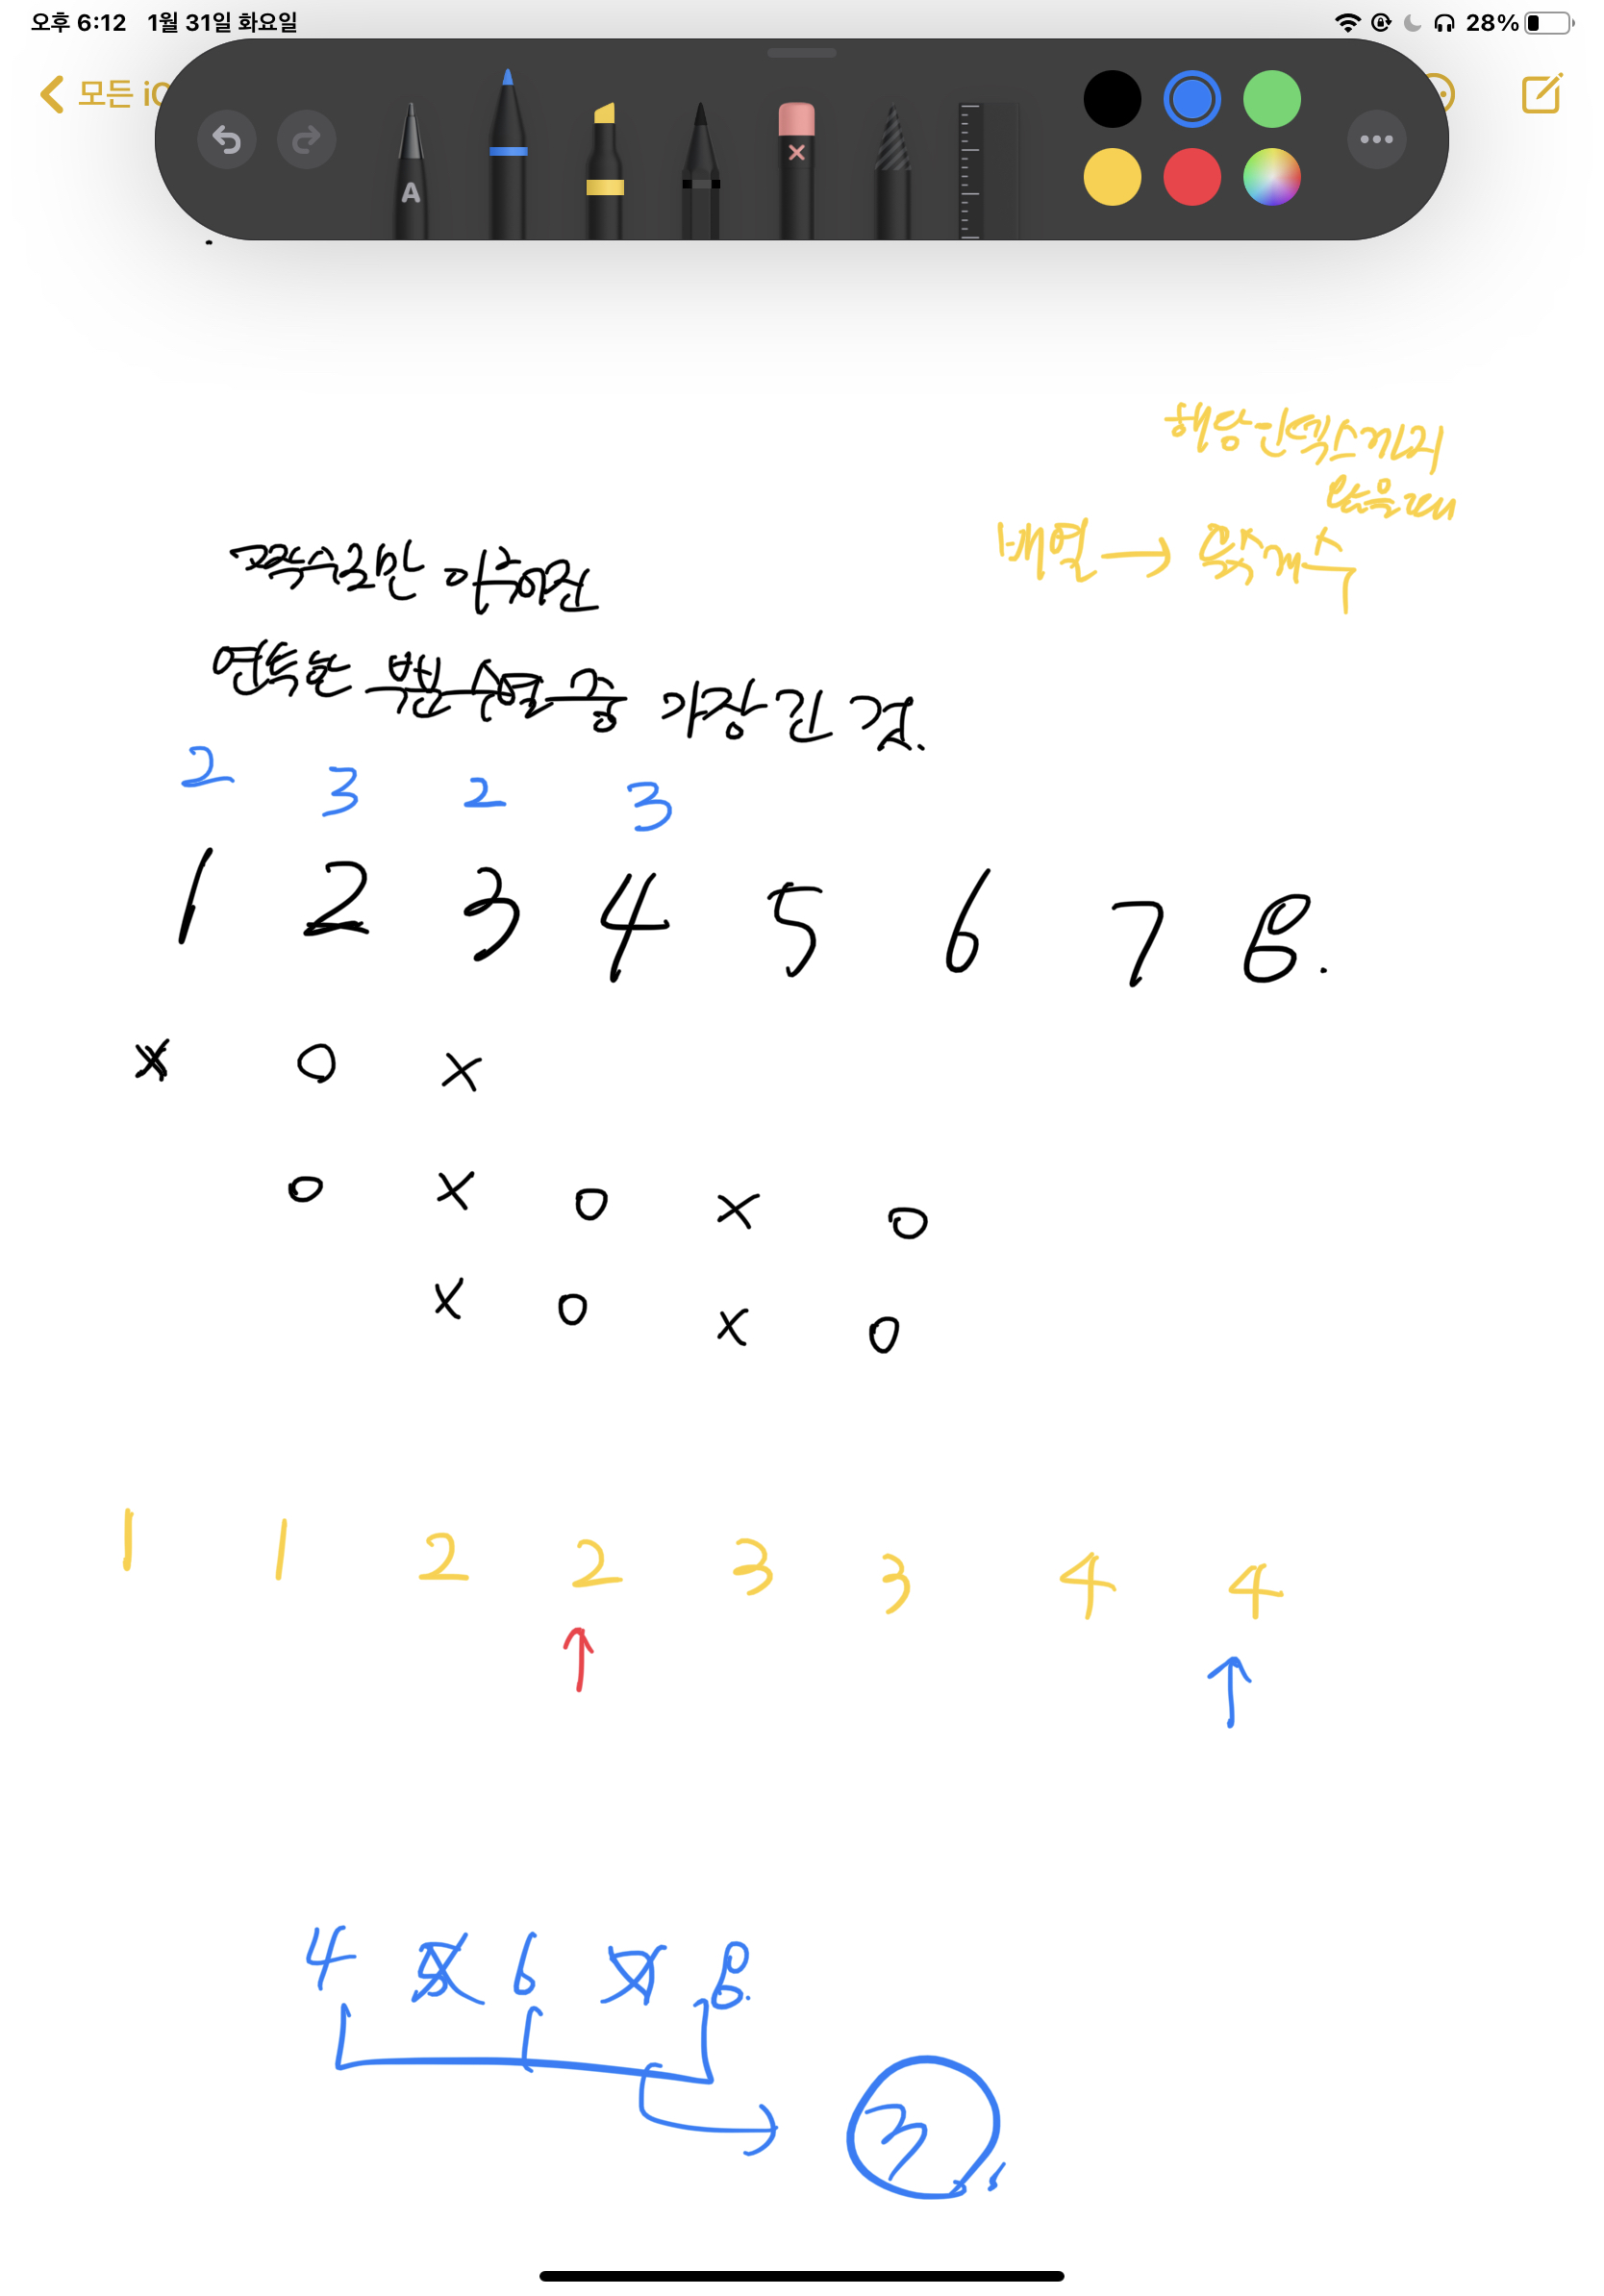 오후 6:12 1월 31일 화요일 28%
모든 iC
A
해당 인덱스까지
왔을때
배열 → 홀수 개수
짝수로만 이루어진
연속한 부분 수열 중 가장 긴 것.
2 3 2 3
1 2 3 4 5 6 7 8.
x o x
o x o x o
x o x o
1 1 2 2 3 3 4 4
↑ ↑
4 5 6 7 8.
3